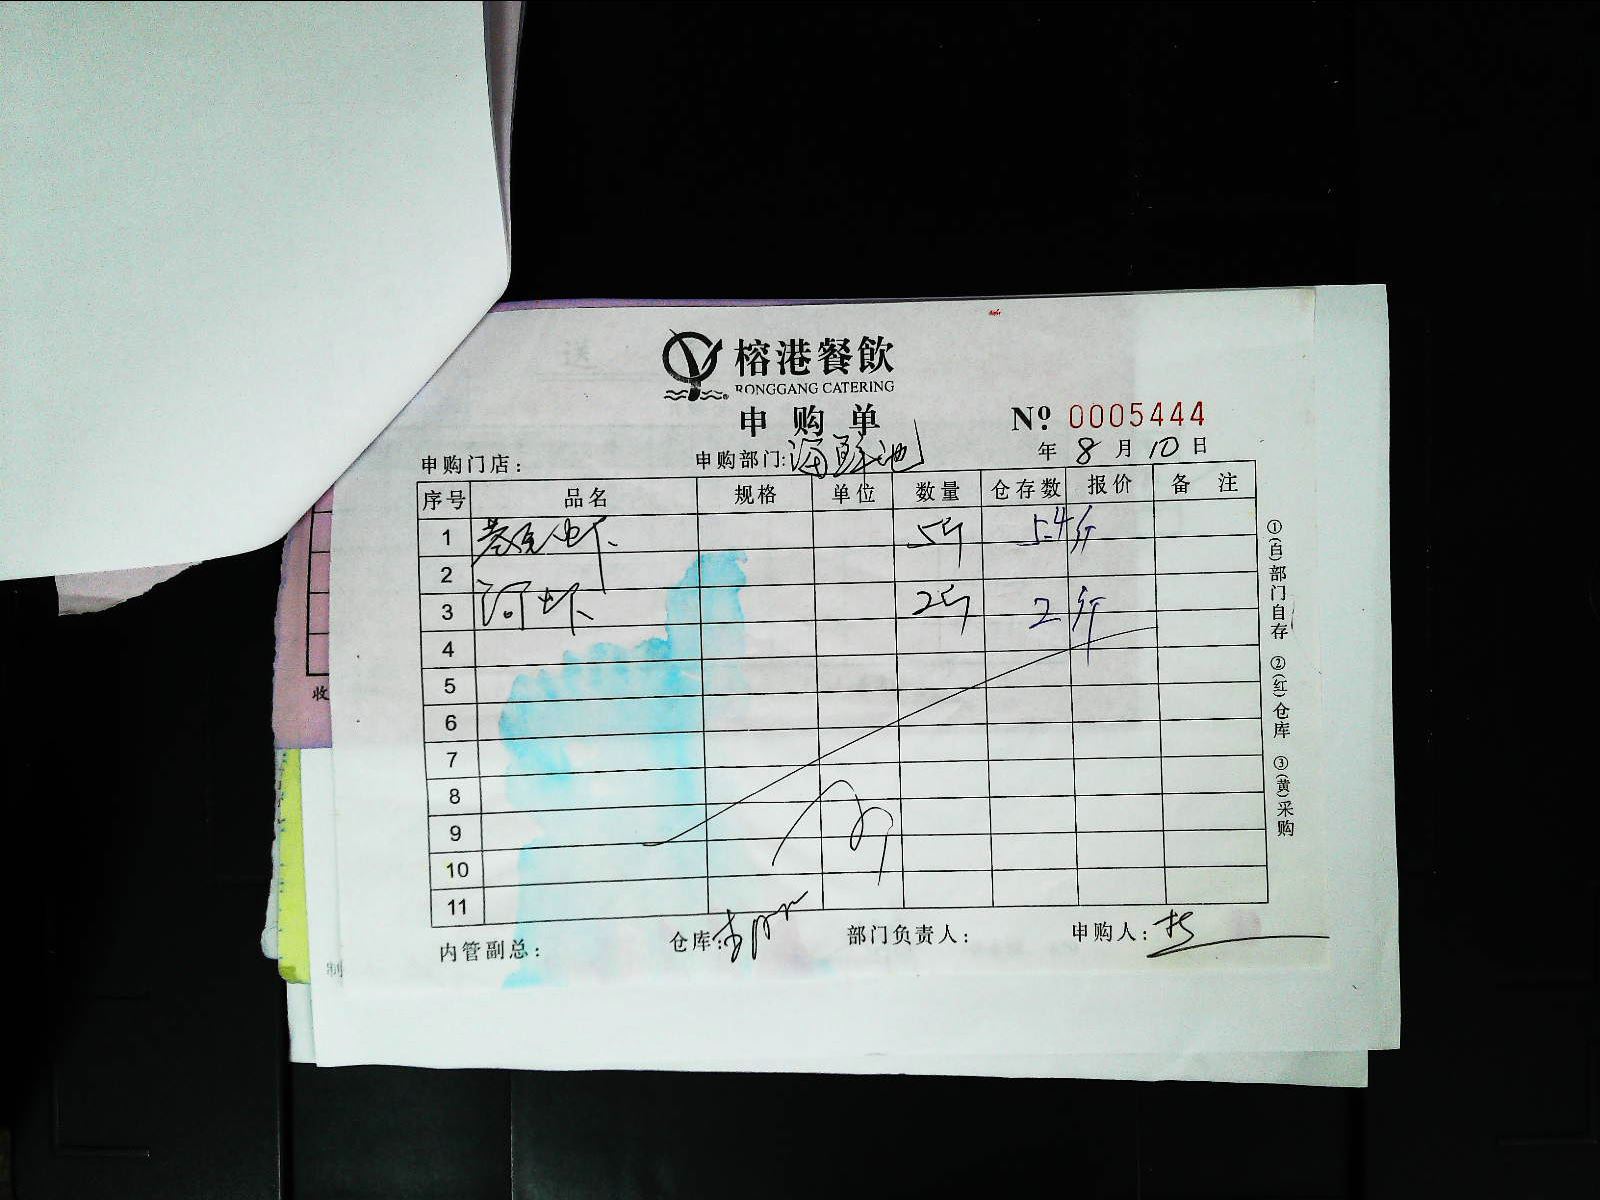 榕港餐飲
RONGGANG CATERING
申购单
№ 0005444
申购门店: 申购部门:海鲜池 年 8 月 10 日
序号 品名 规格 单位 数量 仓存数 报价 备 注
1 基尾虾 5斤 5.4斤
2
3 河虾 2斤 2斤
4
5
6
7
8
9
10
11
内管副总: 仓库: 部门负责人: 申购人:
①(白)部门自存 ②(红)仓库 ③(黄)采购
收
制
送